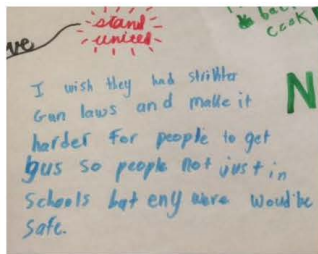 ve
stand
united
bac
cook
N
I wish they had strihter
Gun laws and make it
harder for people to get
gus so people not just in
schools bat eny were woud be
safe.